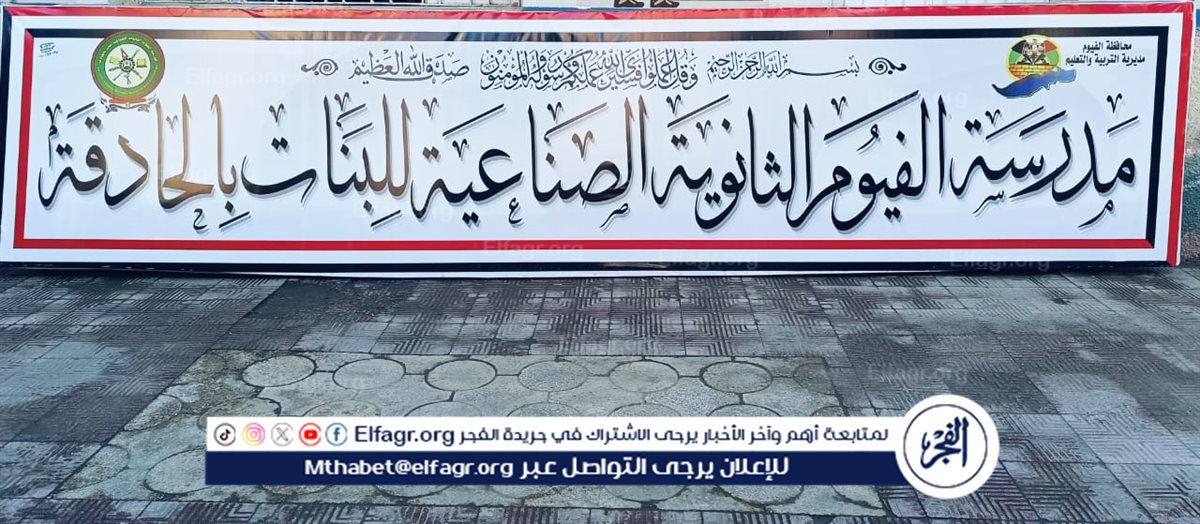 محافظة الفيوم
مديرية التربية والتعليم
بسم الله الرحمن الرحيم
وقل اعملوا فسيرى الله عملكم ورسوله والمؤمنون
صدق الله العظيم
مدرسة الفيوم الثانوية الصناعية للبنات بالحادقة
لمتابعة أهم وآخر الأخبار يرجى الاشتراك في جريدة الفجر Elfagr.org
للإعلان يرجى التواصل عبر Mthabet@elfagr.org
الفجر
Elfagr.org